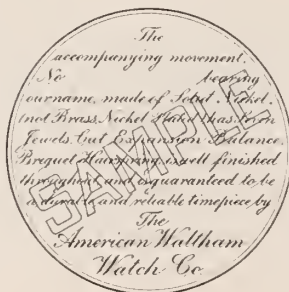 The
accompanying movement.
No bearing
our name, made of Solid Nickel,
(not Brass, Nickel Plated) has
Jewels, Cut Expansion Balance,
Breguet Hairspring, is well finished
throughout, and is guaranteed to be
a durable and reliable timepiece by
The
American Waltham
Watch Co.
SAMPLE